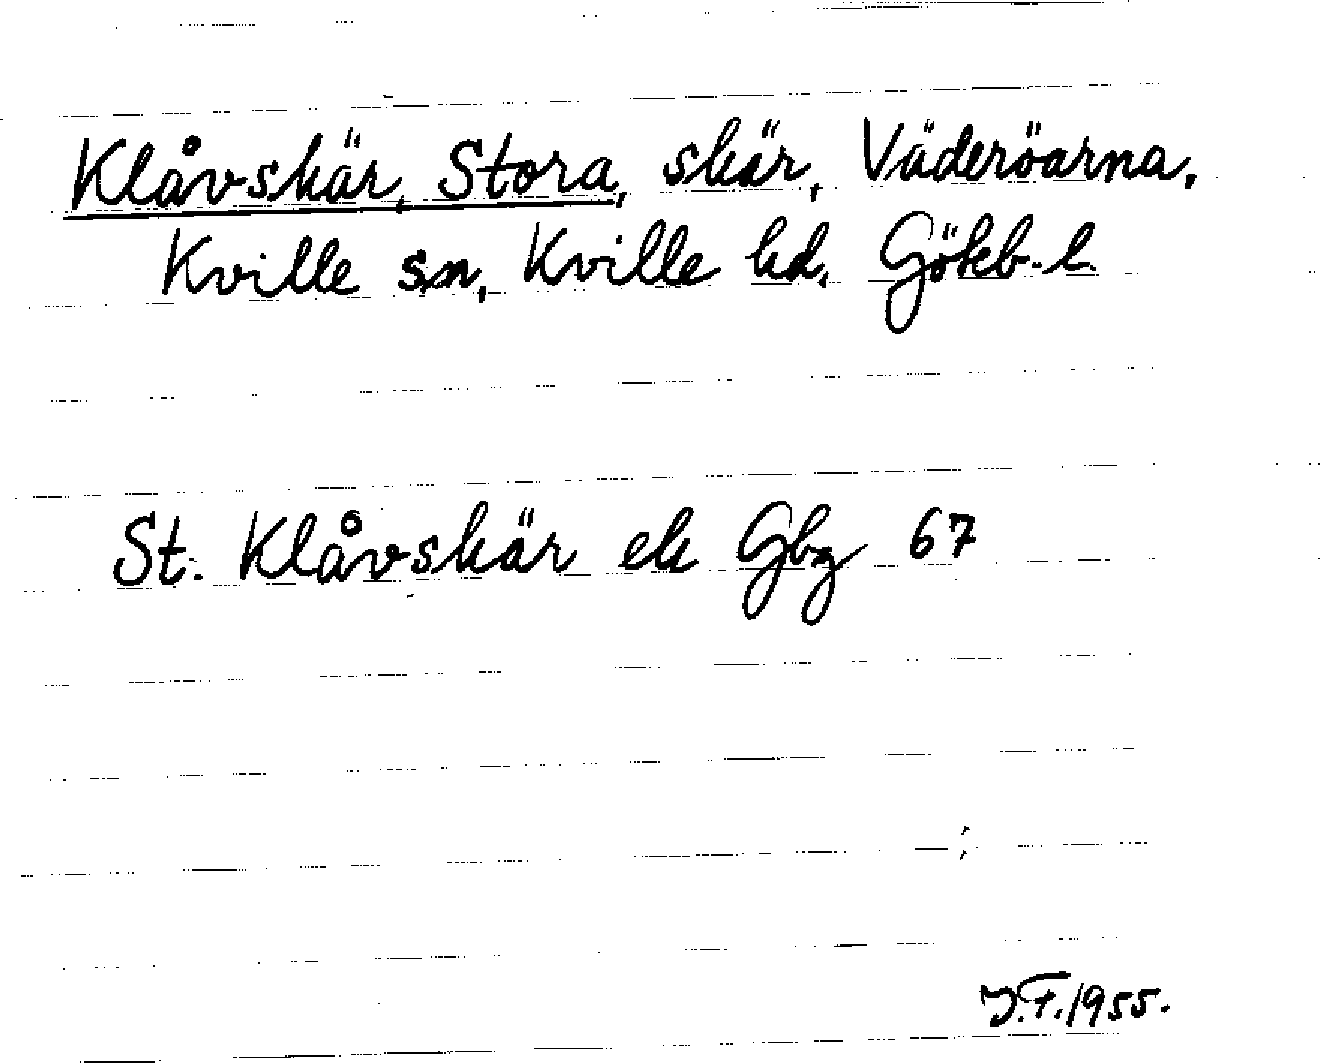 Klåvskär, Stora, skär, Väderöarna,
Kville sn, Kville hd, Gökb. l.
St. Klåvskär ek Gbg 67
J.F. 1955.